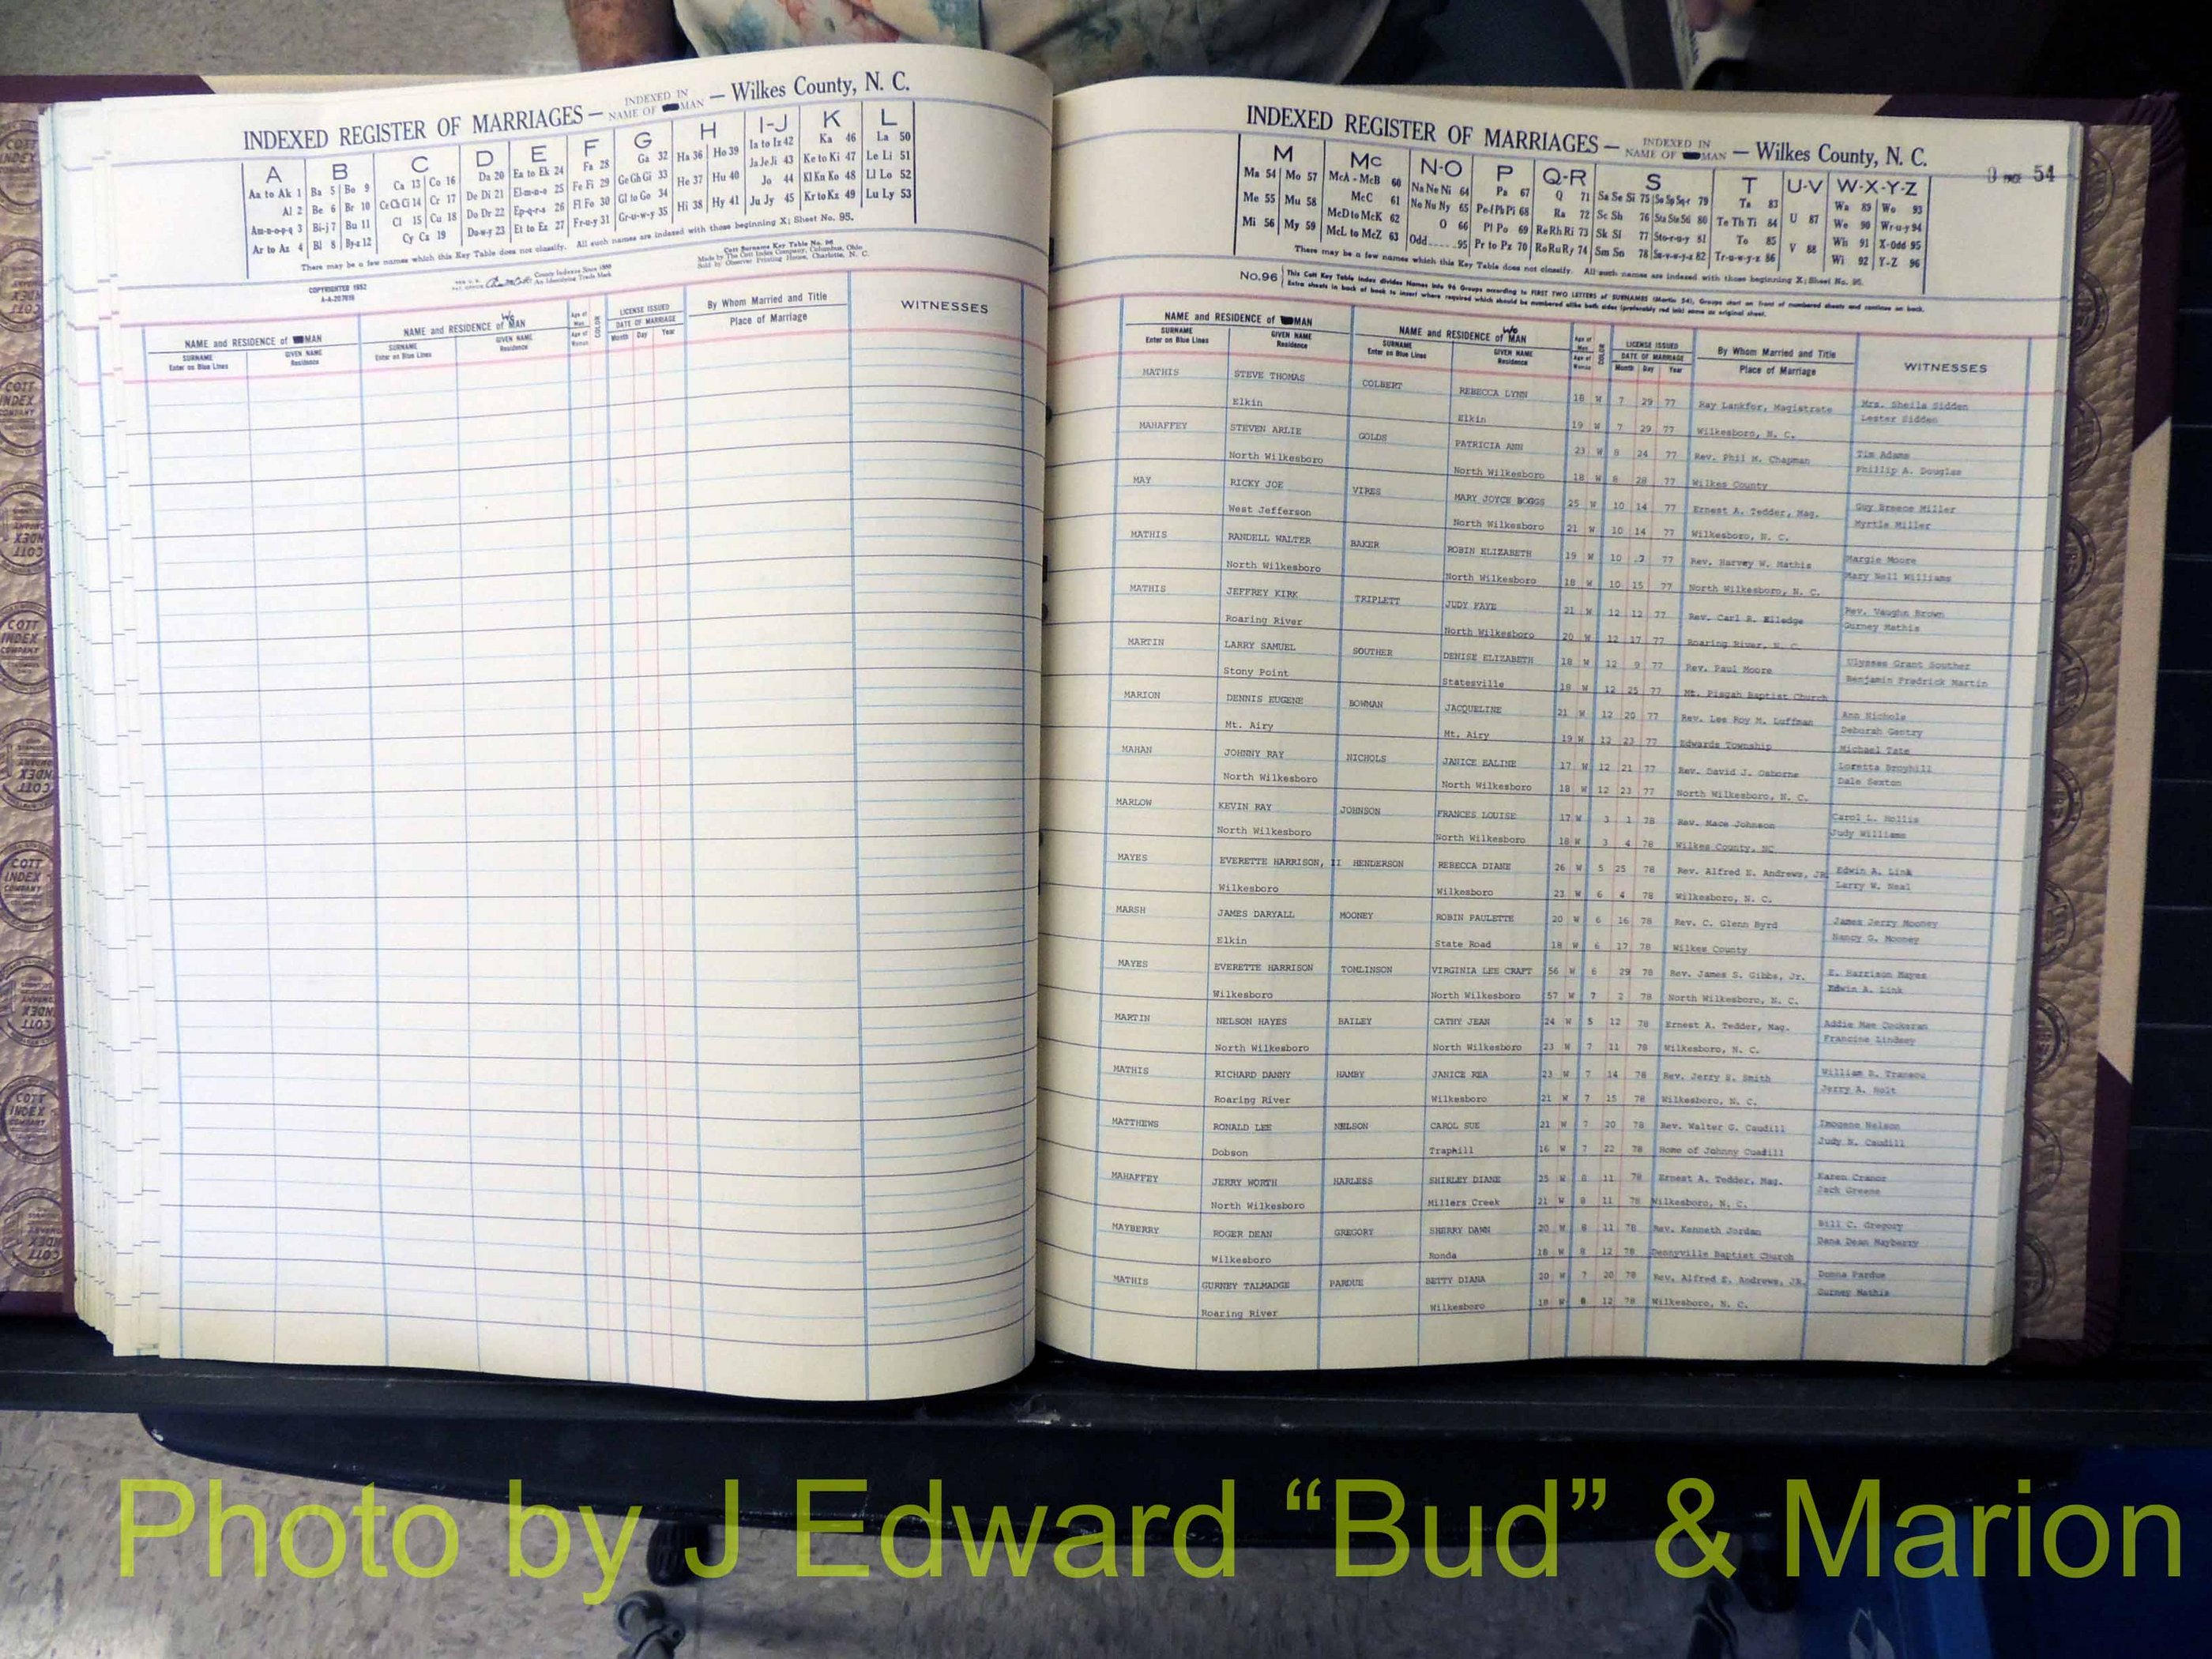 INDEXED REGISTER OF MARRIAGES — INDEXED IN NAME OF MAN — Wilkes County, N. C.
A B C D E F G H I-J K L
Aa to Ak 1 Ba 5 Bo 9 Ca 13 Co 16 Da 20 Ea to Ek 24 Fa 28 Ga 32 Ha 36 Ho 39 Ia to Iz 42 Ka 46 La 50
Al 2 Be 6 Br 10 Ce Ch Ci 14 Cr 17 De Di 21 El-m-n-o 25 Fe Fi 29 Ge Gh Gi 33 He 37 Hu 40 Ja Je Ji 43 Ke to Ki 47 Le Li 51
Am-n-o-p-q 3 Bi-j 7 Bu 11 Cl 15 Cu 18 Do Dr 22 Ep-q-r-s 26 Fl Fo 30 Gl to Go 34 Hi 38 Hy 41 Jo 44 Kl Kn Ko 48 Ll Lo 52
Ar to Az 4 Bl 8 By-z 12 Cy Cz 19 Du-w-y 23 Et to Ez 27 Fr-u-y 31 Gr-u-w-y 35 Ju Jy 45 Kr to Kz 49 Lu Ly 53
There may be a few names which this Key Table does not classify. All such names are indexed with those beginning X; Sheet No. 95.
COPYRIGHTED 1952
Cott Surname Key Table No. 96
Made by The Cott Index Company, Columbus, Ohio
Sold by Observer Printing House, Charlotte, N. C.
County Indexes Since 1888
An Identifying Trade Mark
NAME and RESIDENCE of MAN NAME and RESIDENCE of WoMAN Age of Man Age of Woman COLOR LICENSE ISSUED DATE OF MARRIAGE By Whom Married and Title WITNESSES
SURNAME Enter on Blue Lines GIVEN NAME Residence SURNAME Enter on Blue Lines GIVEN NAME Residence Month Day Year Place of Marriage
INDEXED REGISTER OF MARRIAGES — INDEXED IN NAME OF MAN — Wilkes County, N. C.
PAGE 54
M Mc N-O P Q-R S T U-V W-X-Y-Z
Ma 54 Mo 57 McA - McB 60 Na Ne Ni 64 Pa 67 Q 71 Sa Se Si 75 So Sp Sq-r 79 Ta 83 U 87 Wa 89 Wo 93
Me 55 Mu 58 McC 61 No Nu Ny 65 Pe-f Ph Pi 68 Ra 72 Sc Sh 76 Sta Ste Sti 80 Te Th Ti 84 V 88 We 90 Wr-u-y 94
Mi 56 My 59 McD to McK 62 O 66 Pl Po 69 Re Rh Ri 73 Sk Sl 77 Sto-r-u-y 81 To 85 Wh 91 X-Odd 95
McL to McZ 63 Odd 95 Pr to Pz 70 Ro Ru Ry 74 Sm Sn 78 Su-v-w-y-z 82 Tr-u-w-y-z 86 Wi 92 Y-Z 96
There may be a few names which this Key Table does not classify. All such names are indexed with those beginning X; Sheet No. 95.
No. 96 This Cott Key Table Index divides Names into 96 Groups according to FIRST TWO LETTERS of SURNAMES (Martin 54). Groups start on front of numbered sheets and continue on back.
Extra sheets in back of book to insert where required which should be numbered alike both sides (preferably red ink) same as original sheet.
NAME and RESIDENCE of MAN NAME and RESIDENCE of WoMAN Age of Man Age of Woman COLOR LICENSE ISSUED DATE OF MARRIAGE By Whom Married and Title WITNESSES
SURNAME Enter on Blue Lines GIVEN NAME Residence SURNAME Enter on Blue Lines GIVEN NAME Residence Month Day Year Place of Marriage
MATHIS STEVE THOMAS COLBERT REBECCA LYNN 18 W 7 29 77 Ray Lankfor, Magistrate Mrs. Sheila Sidden
Elkin Elkin 19 W 7 29 77 Wilkesboro, N. C. Lester Sidden
MAHAFFEY STEVEN ARLIE GOLDS PATRICIA ANN 23 W 8 24 77 Rev. Phil M. Chapman Tim Adams
North Wilkesboro North Wilkesboro 18 W 8 28 77 Wilkes County Phillip A. Douglas
MAY RICKY JOE VIRES MARY JOYCE BOGGS 25 W 10 14 77 Ernest A. Tedder, Mag. Guy Breece Miller
West Jefferson North Wilkesboro 21 W 10 14 77 Wilkesboro, N. C. Myrtle Miller
MATHIS RANDELL WALTER BAKER ROBIN ELIZABETH 19 W 10 .3 77 Rev. Harvey W. Mathis Margie Moore
North Wilkesboro North Wilkesboro 18 W 10 15 77 North Wilkesboro, N. C. Mary Nell Williams
MATHIS JEFFREY KIRK TRIPLETT JUDY FAYE 21 W 12 12 77 Rev. Carl R. Elledge Rev. Vaughn Brown
Roaring River North Wilkesboro 20 W 12 17 77 Roaring River, N. C. Gurney Mathis
MARTIN LARRY SAMUEL SOUTHER DENISE ELIZABETH 18 W 12 9 77 Rev. Paul Moore Ulysses Grant Souther
Stony Point Statesville 18 W 12 25 77 Mt. Pisgah Baptist Church Benjamin Fredrick Martin
MARION DENNIS EUGENE BOWMAN JACQUELINE 21 W 12 20 77 Rev. Lee Roy M. Luffman Ann Nichols
Mt. Airy Mt. Airy 19 W 12 23 77 Edwards Township Deborah Gentry
Michael Tate
MAHAN JOHNNY RAY NICHOLS JANICE EALINE 17 W 12 21 77 Rev. David J. Osborne Loretta Broyhill
North Wilkesboro North Wilkesboro 18 W 12 23 77 North Wilkesboro, N. C. Dale Sexton
MARLOW KEVIN RAY JOHNSON FRANCES LOUISE 17 W 3 1 78 Rev. Mace Johnson Carol L. Hollis
North Wilkesboro North Wilkesboro 18 W 3 4 78 Wilkes County, NC Judy Williams
MAYES EVERETTE HARRISON, II HENDERSON REBECCA DIANE 26 W 5 25 78 Rev. Alfred E. Andrews, JR. Edwin A. Link
Wilkesboro Wilkesboro 23 W 6 4 78 Wilkesboro, N. C. Larry W. Neal
MARSH JAMES DARYALL MOONEY ROBIN PAULETTE 20 W 6 16 78 Rev. C. Glenn Byrd James Jerry Mooney
Elkin State Road 18 W 6 17 78 Wilkes County Nancy G. Mooney
MAYES EVERETTE HARRISON TOMLINSON VIRGINIA LEE CRAFT 56 W 6 29 78 Rev. James S. Gibbs, Jr. E. Harrison Mayes
Wilkesboro North Wilkesboro 57 W 7 2 78 North Wilkesboro, N. C. Edwin A. Link
MARTIN NELSON HAYES BAILEY CATHY JEAN 24 W 5 12 78 Ernest A. Tedder, Mag. Addie Mae Cockeran
North Wilkesboro North Wilkesboro 23 W 7 11 78 Wilkesboro, N. C. Francine Lindsey
MATHIS RICHARD DANNY HAMBY JANICE REA 23 W 7 14 78 Rev. Jerry E. Smith William D. Transou
Roaring River Wilkesboro 21 W 7 15 78 Wilkesboro, N. C. Jerry A. Holt
MATTHEWS RONALD LEE NELSON CAROL SUE 21 W 7 20 78 Rev. Walter G. Caudill Imogene Nelson
Dobson Traphill 16 W 7 22 78 Home of Johnny Cuadill Judy N. Caudill
MAHAFFEY JERRY WORTH HARLESS SHIRLEY DIANE 25 W 8 11 78 Ernest A. Tedder, Mag. Karen Cranor
North Wilkesboro Millers Creek 21 W 8 11 78 Wilkesboro, N. C. Jack Greene
MAYBERRY ROGER DEAN GREGORY SHERRY DAWN 20 W 8 11 78 Rev. Kenneth Jordan Bill C. Gregory
Wilkesboro Ronda 18 W 8 12 78 Dennyville Baptist Church Dana Dean Mayberry
MATHIS GURNEY TALMADGE PARDUE BETTY DIANA 20 W 7 20 78 Rev. Alfred E. Andrews, JR. Donna Pardue
Roaring River Wilkesboro 18 W 8 12 78 Wilkesboro, N. C. Gurney Mathis
Photo by J Edward “Bud” & Marion